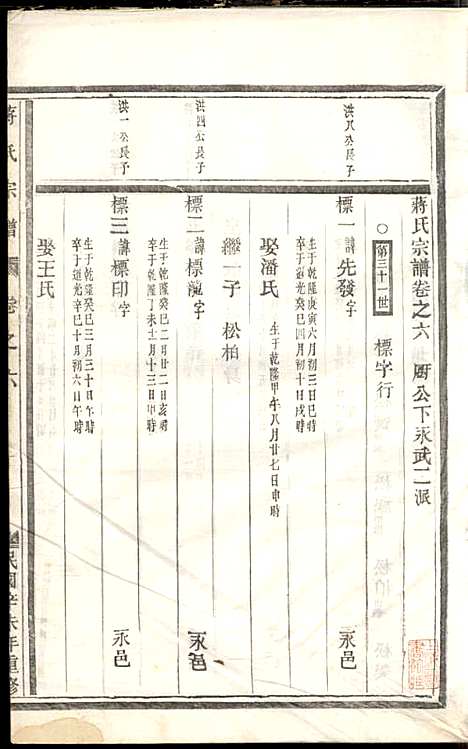 蔣氏宗譜卷之六 厨公下永武二派
○ 第三十一世 標字行
洪八公長子
標一 諱先發 字 永邑
生于乾隆庚寅六月初三日巳時
卒于道光癸巳四月初十日戌時
娶潘氏 生于乾隆甲午八月廿七日申時
繼一子 松柏
洪四公長子
標二 諱標瀧 字 永邑
生于乾隆癸巳二月廿二日亥時
卒于乾隆丁未十二月十三日申時
洪一公長子
標三 諱標印 字 永邑
生于乾隆癸巳三月三十日午時
卒于道光辛巳十月初六日午時
娶王氏
蔣氏宗譜 卷之六 民國辛未年重修